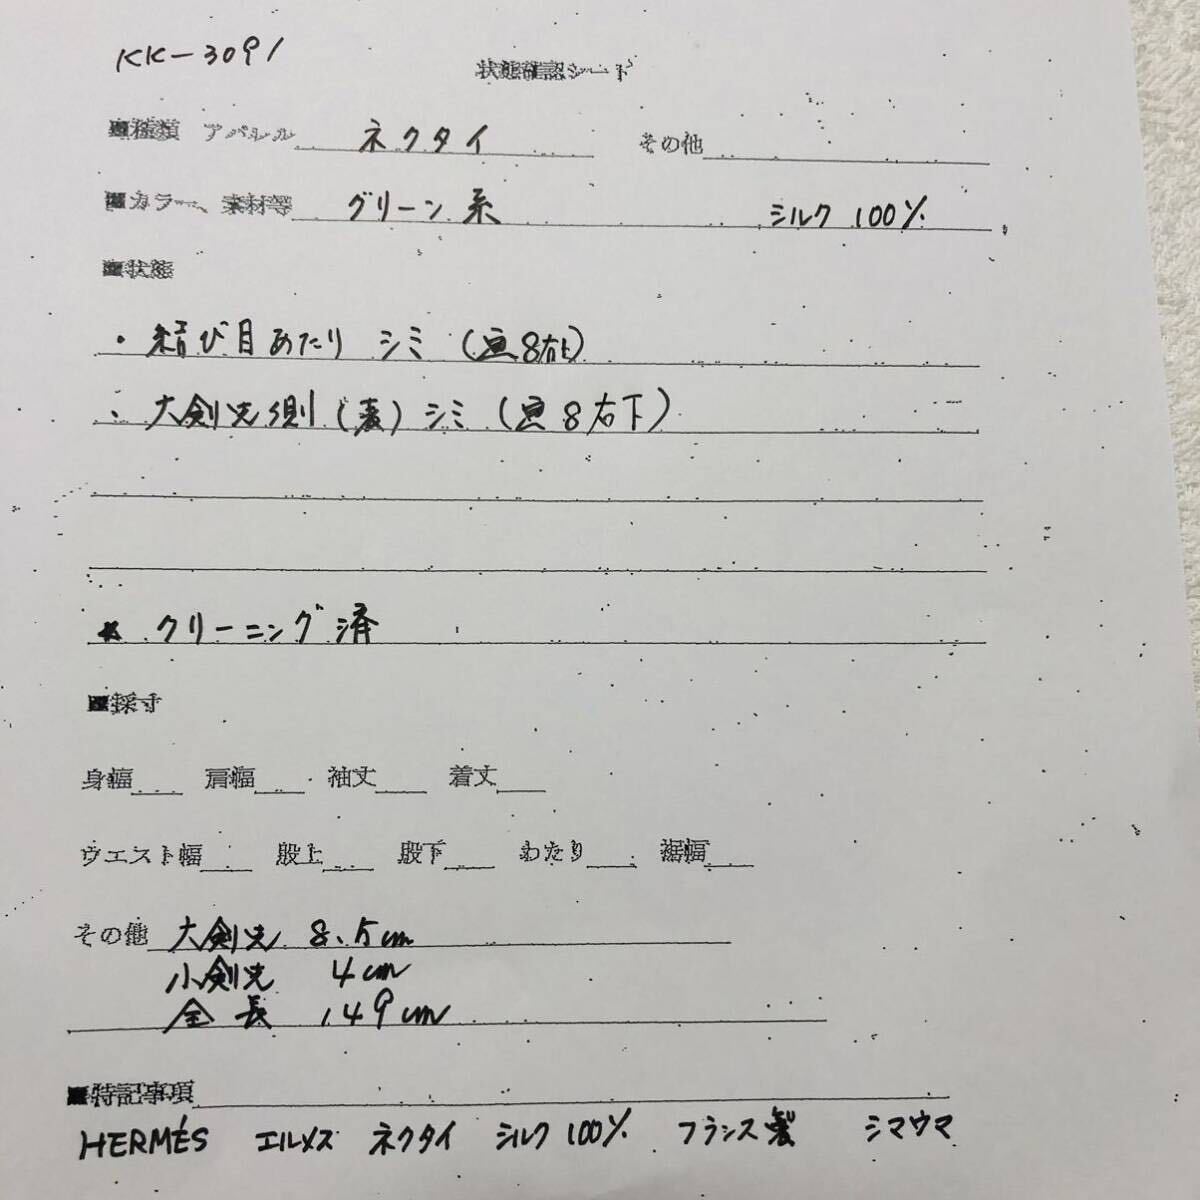 KK-3091
状態確認シート
■種類 アパレル ネクタイ その他
■カラー、素材等 グリーン系 シルク 100%
■状態
・結び目あたり シミ (画8右上)
・大剣先側(裏)シミ(画8右下)
* クリーニング済
■採寸
身幅 肩幅 袖丈 着丈
ウエスト幅 股上 股下 わたり 裾幅
その他 大剣先 8.5cm
小剣先 4cm
全長 149cm
■特記事項
HERMÉS エルメス ネクタイ シルク100% フランス製 シマウマ